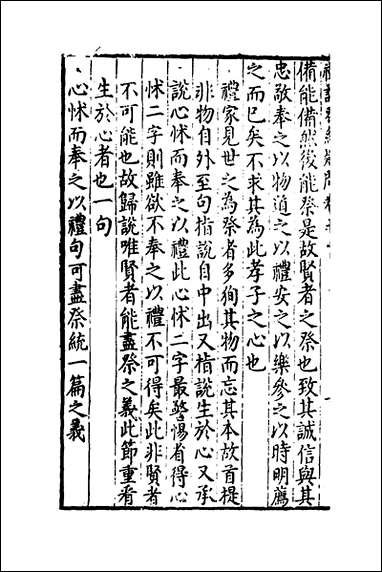 備能備然後能祭是故賢者之祭也致其誠信與其
忠敬奉之以物道之以禮安之以樂參之以時明薦
之而已矣不求其為此孝子之心也
禮家見世之為祭者多徇其物而忘其本故首提
非物自外至句指說自中出又指說生於心又承
說心怵而奉之以禮此心怵二字最警惕省得心
怵二字則雖欲不奉之以禮不可得矣此非賢者
不可能也故歸說唯賢者能盡祭之義此節重看
生於心者也一句
心怵而奉之以禮句可盡祭統一篇之義